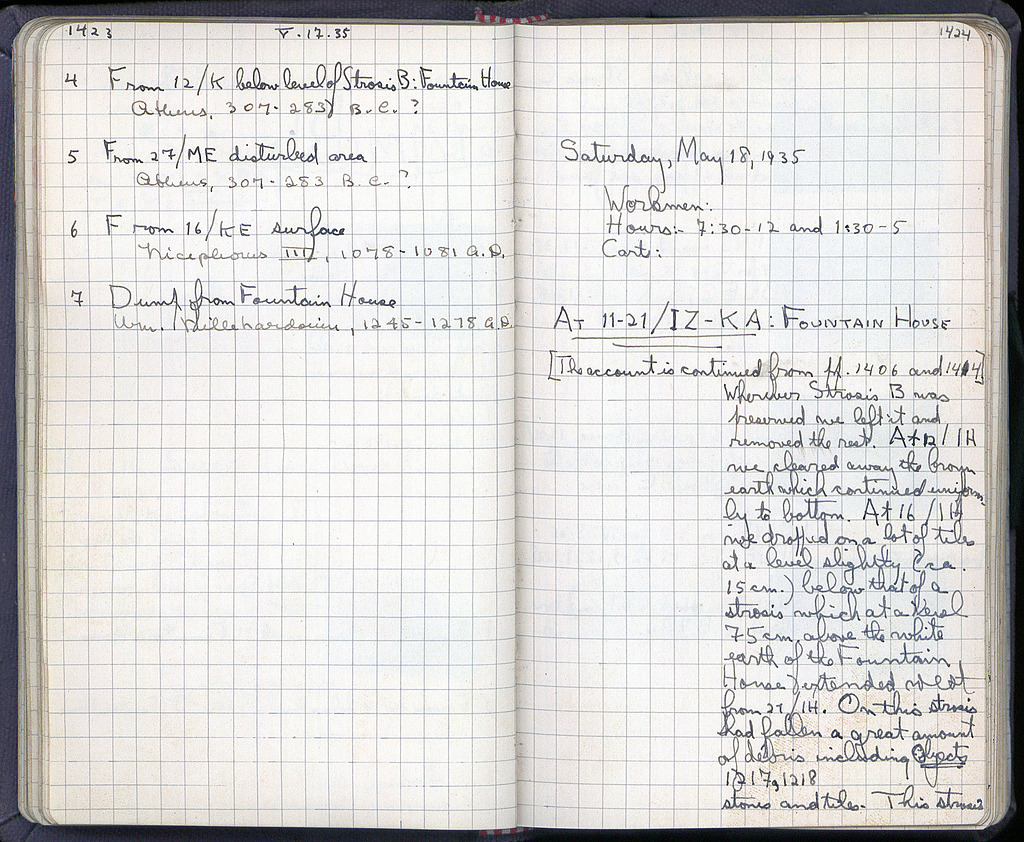 1423
V.17.35
4 From 12/K below level of Strosis B: Fountain House
Athens, 307-283) B.C.?
5 From 27/ME disturbed area
Athens, 307-283 B.C.?
6 From 16/KE surface
Nicephorus III, 1078-1081 A.D.
7 Dump from Fountain House
Wm. Villehardouin, 1245-1278 A.D.
1424
Saturday, May 18, 1935
Workmen:
Hours:- 7:30-12 and 1:30-5
Cart:
AT 11-21/IZ-KA: FOUNTAIN HOUSE
[The account is continued from ff. 1406 and 1414]
Wherever Strosis B was
preserved we left it and
removed the rest. At 12/IH
we cleared away the brown
earth which continued uniform-
ly to bottom. At 16/IH
we dropped on a lot of tiles
at a level slightly (ca.
15 cm.) below that of a
strosis which at a level
75 cm. above the white
earth of the Fountain
House) extended west
from 21/IH. On this strosis
had fallen a great amount
of debris including Objects
1217, 1218
stones and tiles. This strosis